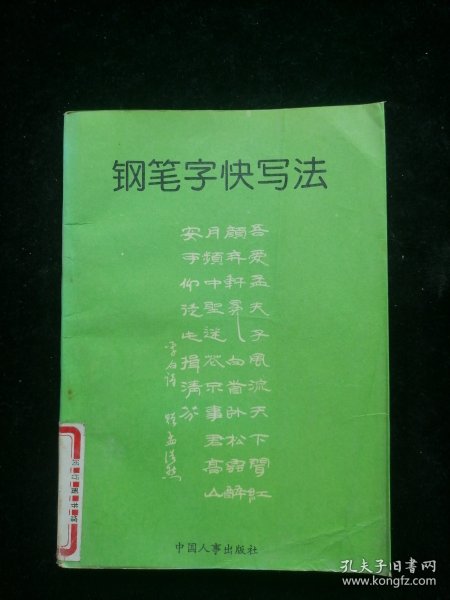 钢笔字快写法
吾爱孟夫子風流天下聞紅
顏弃軒冕白首卧松雲醉
月頻中聖迷花不事君高山
安可仰徒此揖清芬
李白诗 赠孟浩然
中国人事出版社
孔夫子旧书网
www.kongfz.com